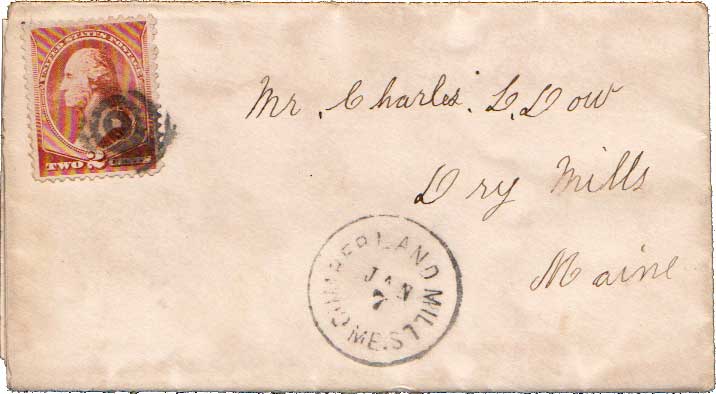 UNITED STATES POSTAGE
TWO 2 CENTS
Mr. Charles. L. Dow
Dry Mills
Maine
CUMBERLAND MILLS
JAN
7
ME.